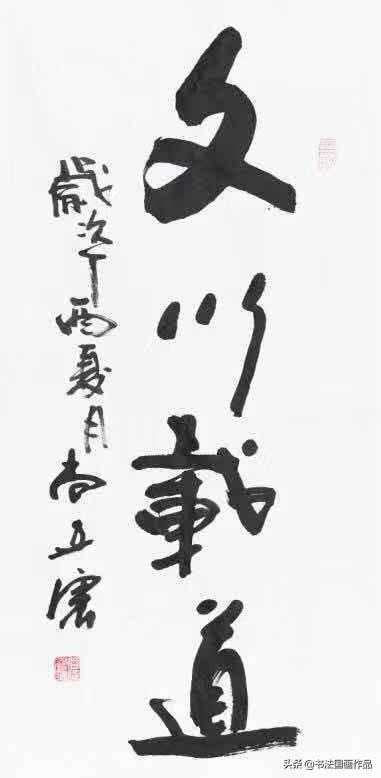 文以載道
歲次丁酉夏月尚
头条 @书法国画作品